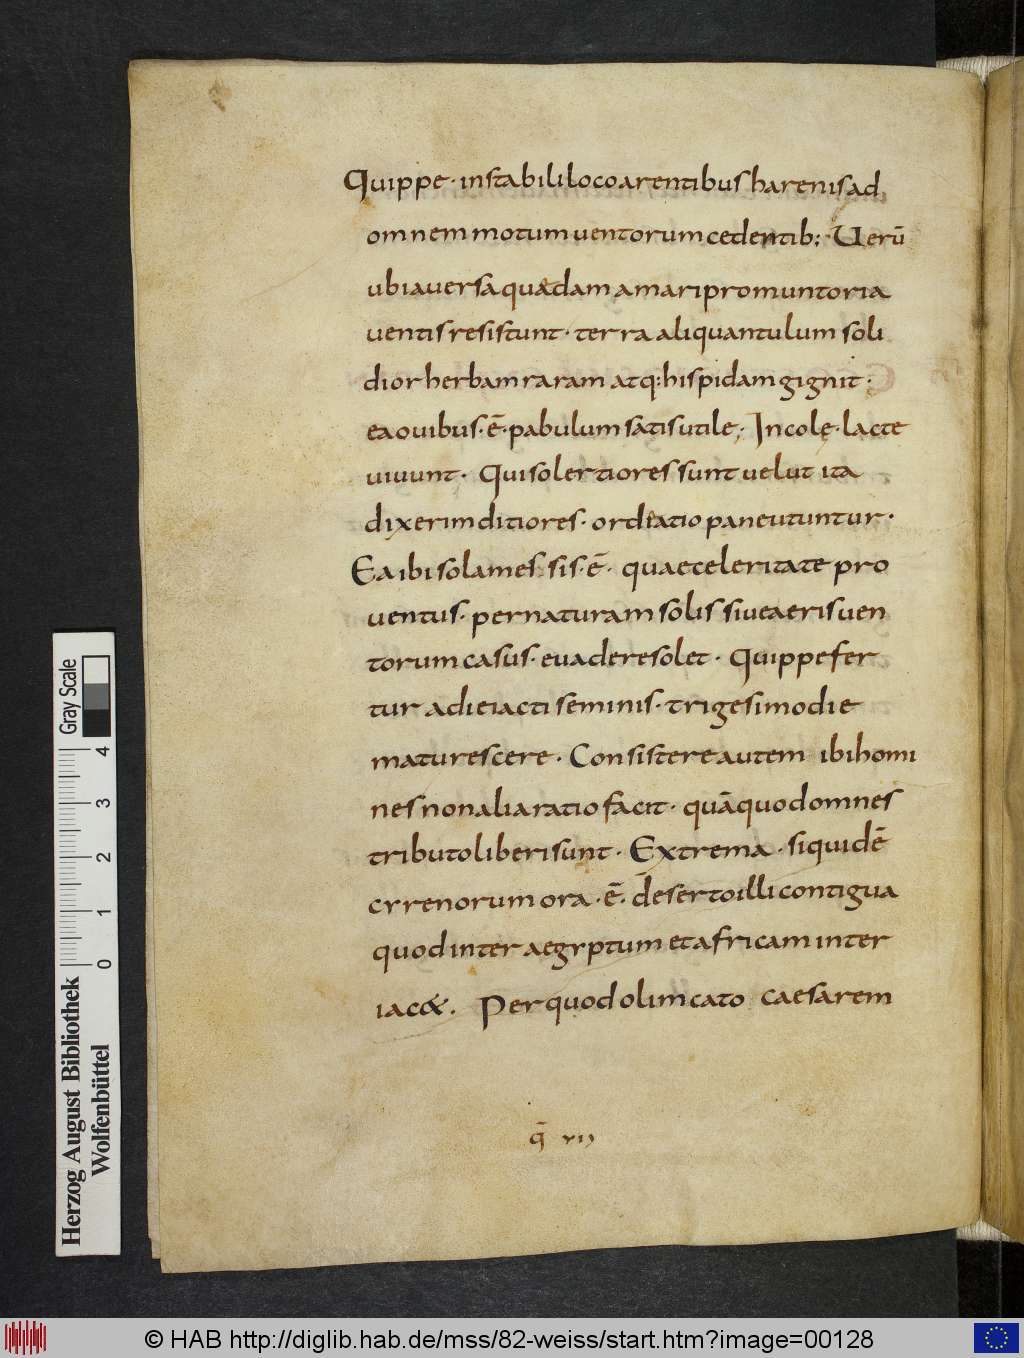 Quippe · instabili loco arentibus harenis ad
omnem motum uentorum cedentib; · Uerū
ubi auersa quaedam a mari promuntoria
uentis resistunt · terra aliquantulum soli
dior herbam raram atq: hispidam gignit ·
ea ouibus · ē · pabulum satis utile; · Incolę · lacte
uiuunt · Qui solertiores sunt uelut ita
dixerim ditiores · ordiatio pane utuntur ·
Ea ibi sola messis · ē · quae celeritate pro
uentus · per naturam solis siue aeris uen
torum casus · euadere solet · Quippe fer
tur a die iacti seminis · trigesimo die
maturescere · Consistere autem ibi homi
nes non alia ratio facit · quā quod omnes
tributo liberi sunt · Extrema · siquidē
cyrenorum ora · ē · deserto illi contigua
quod inter aegyptum et africam inter
iac& · Per quod olim cato caesarem
q̄ VII
Gray Scale
4
3
2
1
0
Herzog August Bibliothek
Wolfenbüttel
© HAB http://diglib.hab.de/mss/82-weiss/start.htm?image=00128